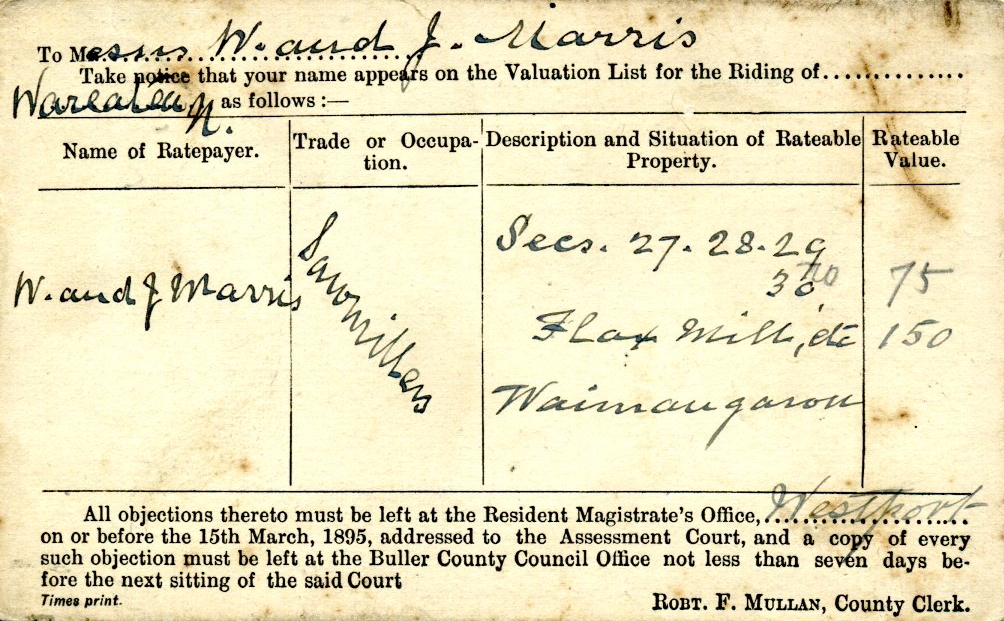 To Messrs W. and J. Marris
Take notice that your name appears on the Valuation List for the Riding of
as follows :—
N.
Name of Ratepayer.
Trade or Occupa-
tion.
Description and Situation of Rateable
Property.
Rateable
Value.
W. and J Marris
Sawmillers
Secs. 27. 28. 29
30
75
Flax Mill, etc 150
Waimangaroa
All objections thereto must be left at the Resident Magistrate's Office, Westport
on or before the 15th March, 1895, addressed to the Assessment Court, and a copy of every
such objection must be left at the Buller County Council Office not less than seven days be-
fore the next sitting of the said Court
Times print.
ROBT. F. MULLAN, County Clerk.